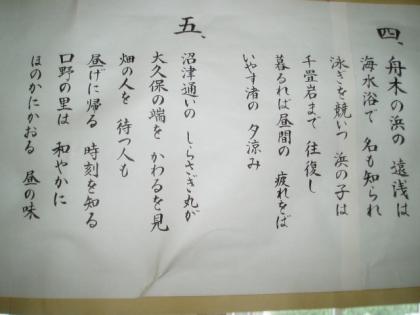 四、舟木の浜の 遠浅は
海水浴で 名も知られ
泳ぎを競いつ 浜の子は
千畳岩まで 往復し
暮るれば昼間の 疲れをば
いやす渚の 夕涼み
五、
沼津通いの しらさぎ丸が
大久保の端を かわるを見
畑の人を 待つ人も
昼げに帰る 時刻を知る
口野の里は 和やかに
ほのかにかおる 昼の味